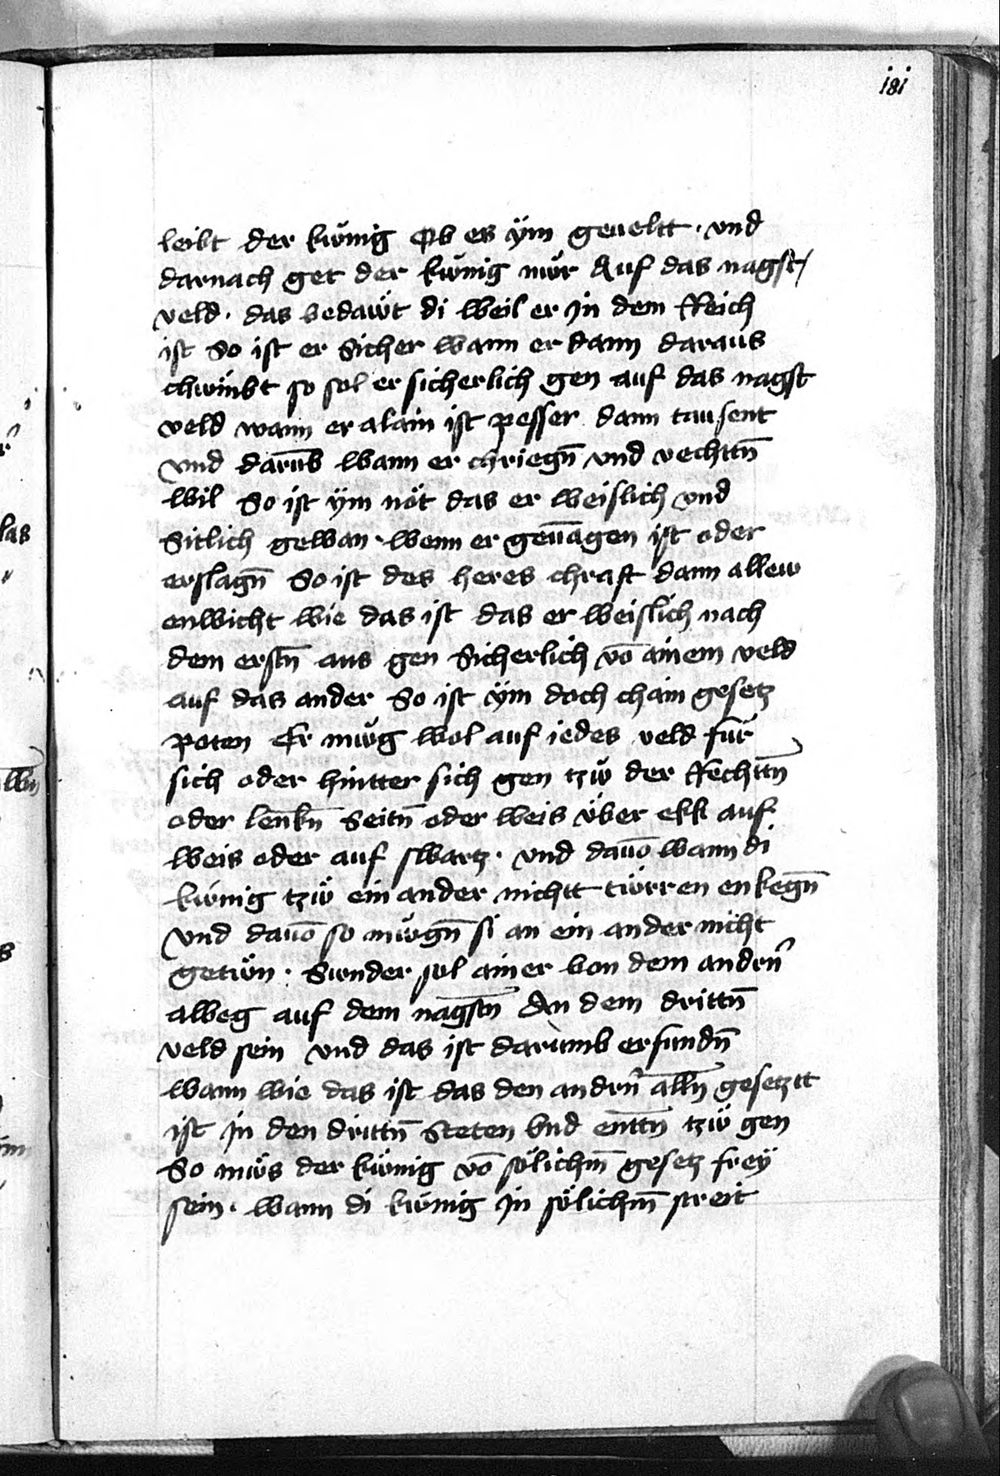 181
leibt der kwͤnig Ob es ÿm geueltt · vnd
darnach get der kwͤnig nwͤr Auf das nagst
veld · das bedawͤt di weil er Jn dem Reich
ist So ist er Sicher wann er dann daraus
chwͤmbt so sol er sicherlich gen auf das nagst
veld wann er alain ist pesser dann tausent
vnd darūb wann er chriegn̄ vnd vechttn̄
wil So ist ÿm nöt das er weislich vnd
Sitlich gewan · wenn er geua̅gen ist oder
erslagn̄ So ist des heres chraft dann allew
enwicht wie das ist das er weislich nach
dem erstn̄ aus gen Sicherlich vō ainem veld
auf das ander So ist ÿm doch chain gesetz
poten Er mwͤg wol auf iedes veld für
sich oder hintter sich gen tzwͤ der Rechttn̄
oder lenkn̄ Seitn̄ oder weis vͤber ekk auf
weis oder auf swartz · vnd dauō wann di
kwͤnig tzwͤ ein ander nichtt twͤrren enkegn̄
vnd dauō so mwͤgn̄ si an ein ander nicht
getwͤn · Swnder sol ainer von dem andrn̄
alweg auf dem nagstn̄ An dem drittn̄
veld sein vnd das ist darumb erfundn̄
wann wie das ist das den andrn̄ alln̄ gesetztt
ist Jn den drittn̄ Steten vnd enttn̄ tzwͤ gen
So mwͤs der kwͤnig vō sölichm̄ gesetz freÿ
sein · wann di kwͤnig Jn sölichm̄ streit